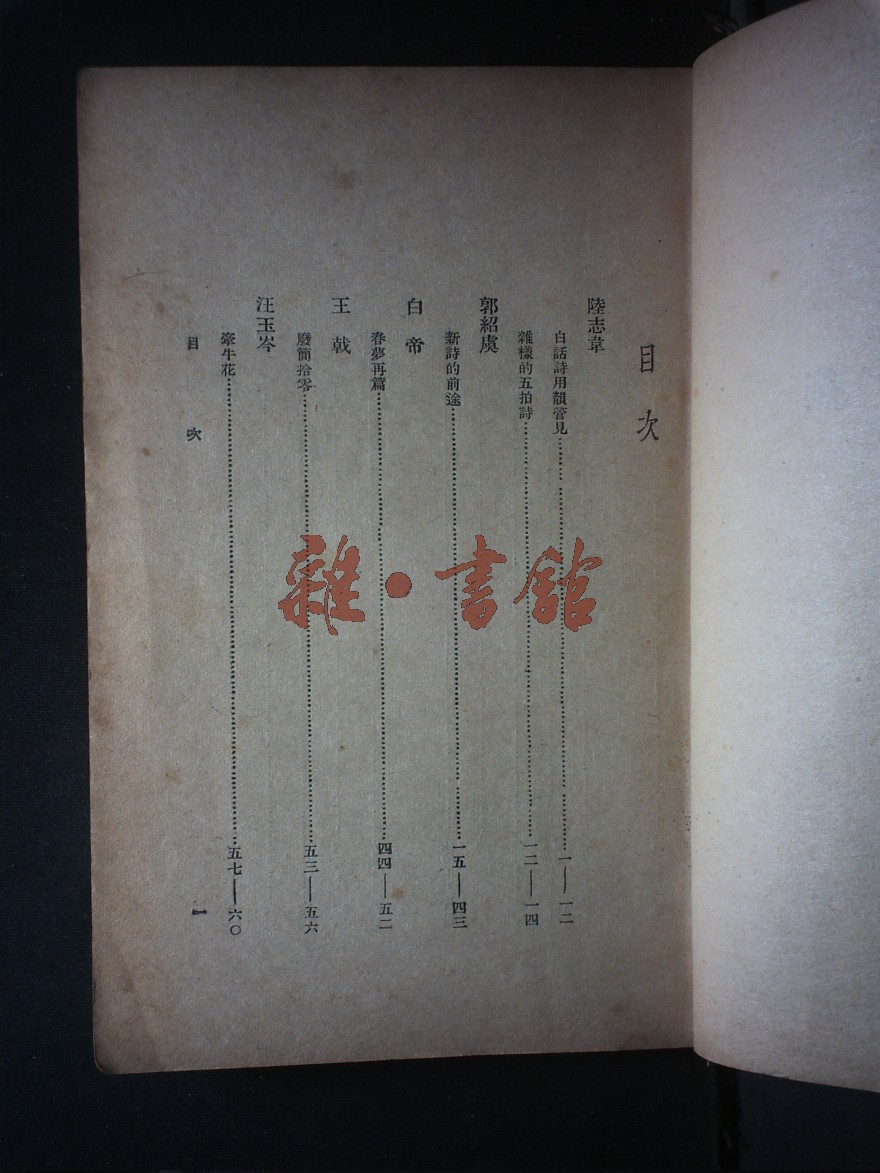 目次
陸志韋
白話詩用韻管見……一——一二
雜樣的五拍詩……一二——一四
郭紹虞
新詩的前途……一五——四三
白帝
春夢再篇……四四——五二
王戟
廢簡拾零……五三——五六
汪玉岑
牽牛花……五七——六〇
目次 一
雜·書館